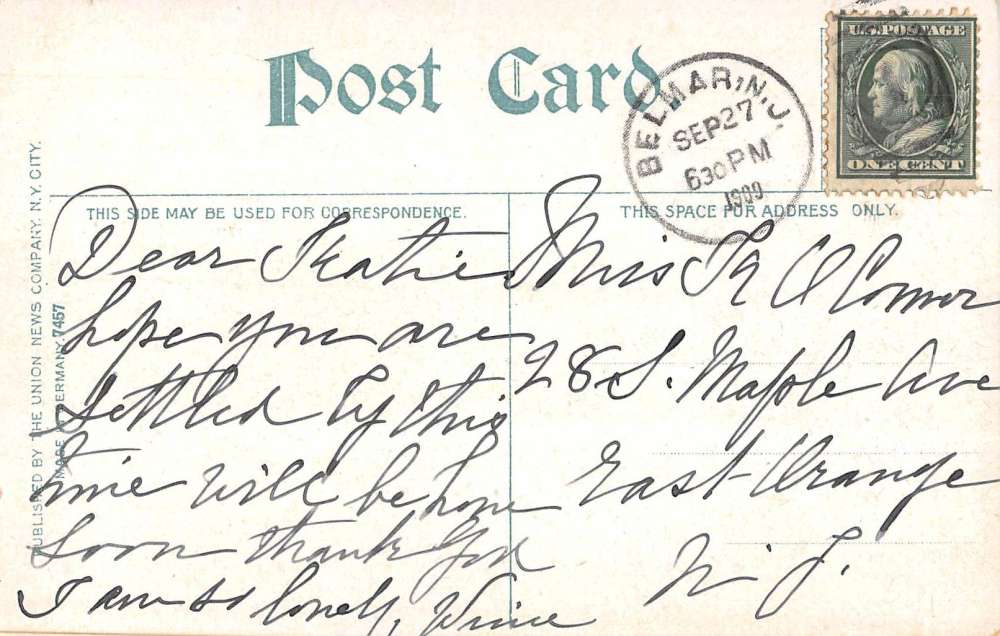 Post Card
U.S. POSTAGE
ONE CENT
BELMAR, N.J.
SEP 27
630 PM
1909
THIS SIDE MAY BE USED FOR CORRESPONDENCE.
THIS SPACE FOR ADDRESS ONLY.
PUBLISHED BY THE UNION NEWS COMPANY, N.Y. CITY.
MADE IN GERMANY. 7457
Dear Katie
hope you are
settled by this
time will be home
soon thank God
I am so lonely,
Miss K O Connor
28 S. Maple Ave
East Orange
N J.